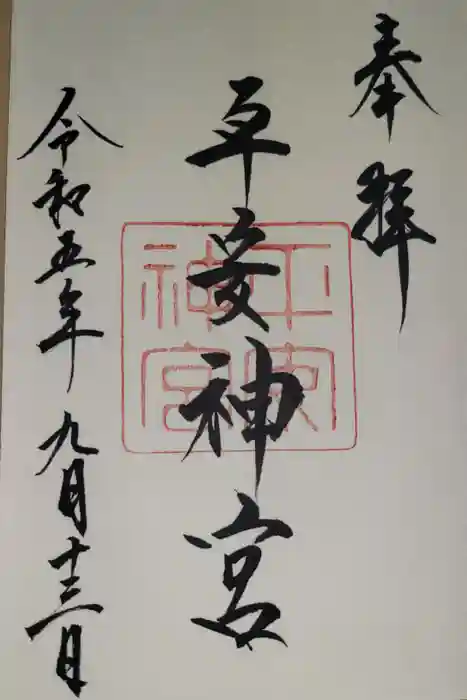 奉拝
平安神宮
令和五年九月十三日
平安
神宮